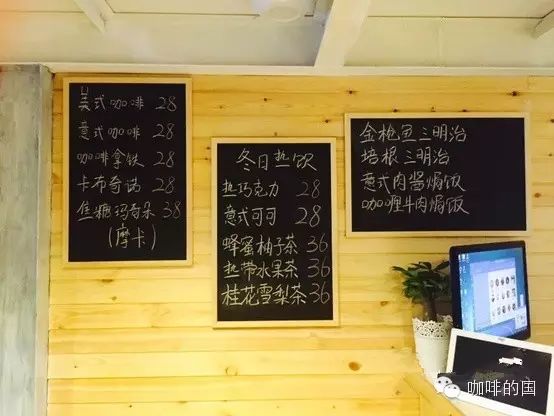 美式咖啡 28
意式咖啡 28
咖啡拿铁 28
卡布奇诺 28
焦糖玛奇朵 38
(摩卡)
冬日热饮
热巧克力 28
意式可可 28
蜂蜜柚子茶 36
热带水果茶 36
桂花雪梨茶 36
金枪鱼三明治
培根三明治
意式肉酱焗饭
咖喱牛肉焗饭
咖啡的国